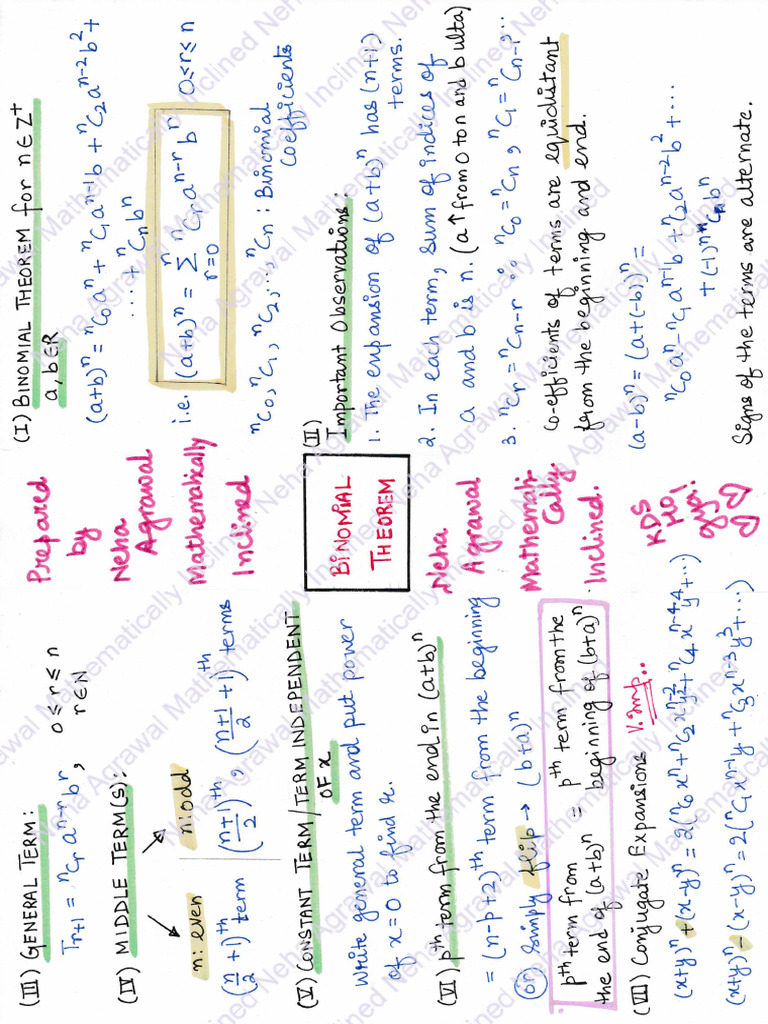 (I) BINOMIAL THEOREM for n∈Z⁺
a, b∈R
(a+b)ⁿ = ⁿC₀aⁿ + ⁿC₁aⁿ⁻¹b + ⁿC₂aⁿ⁻²b² +
.... + ⁿCₙbⁿ
i.e. (a+b)ⁿ = ∑ⁿᵣ₌₀ ⁿCᵣ aⁿ⁻ʳ bⁿ 0≤r≤n
ⁿC₀, ⁿC₁, ⁿC₂, ..., ⁿCₙ : Binomial
Coefficients
(II)
Important Observations:
1. The expansion of (a+b)ⁿ has (n+1)
terms.
2. In each term, sum of indices of
a and b is n. (a↑from 0 to n and b ulta)
3. ⁿCᵣ = ⁿCₙ₋ᵣ ∴ ⁿC₀ = ⁿCₙ, ⁿC₁ = ⁿCₙ₋₁, ...
Co-efficients of terms are equidistant
from the beginning and end.
(a-b)ⁿ = (a+(-b))ⁿ =
ⁿC₀aⁿ - ⁿC₁aⁿ⁻¹b + ⁿC₂aⁿ⁻²b² + ...
+ (-1)ⁿ ⁿCₙbⁿ
Signs of the terms are alternate.
Prepared
by
Neha
Agrawal
Mathematically
Inclined
BINOMIAL
THEOREM
Neha
Agrawal
Mathemati-
Cally
Inclined.
KDS
HO
gya!
(III) GENERAL TERM:
Tᵣ₊₁ = ⁿCᵣ aⁿ⁻ʳ bʳ, 0≤r≤n
r∈N
(IV) MIDDLE TERM(S):
n: even n: odd
(n/2 + 1)ᵗʰ term ((n+1)/2)ᵗʰ, ((n+1)/2 + 1)ᵗʰ terms
(V) CONSTANT TERM/TERM INDEPENDENT
OF x
Write general term and put power
of x=0 to find r.
(VI) pᵗʰ term from the end in (a+b)ⁿ
= (n-p+2)ᵗʰ term from the beginning
(or) Simply flip → (b+a)ⁿ
pᵗʰ term from = pᵗʰ term from the
the end of (a+b)ⁿ beginning of (b+a)ⁿ
(VII) Conjugate Expansions V.imp..
(x+y)ⁿ + (x-y)ⁿ = 2(ⁿC₀xⁿ + ⁿC₂xⁿ⁻²y² + ⁿC₄xⁿ⁻⁴y⁴ + ...)
(x+y)ⁿ - (x-y)ⁿ = 2(ⁿC₁xⁿ⁻¹y + ⁿC₃xⁿ⁻³y³ + ...)
Neha Agrawal Mathematically Inclined